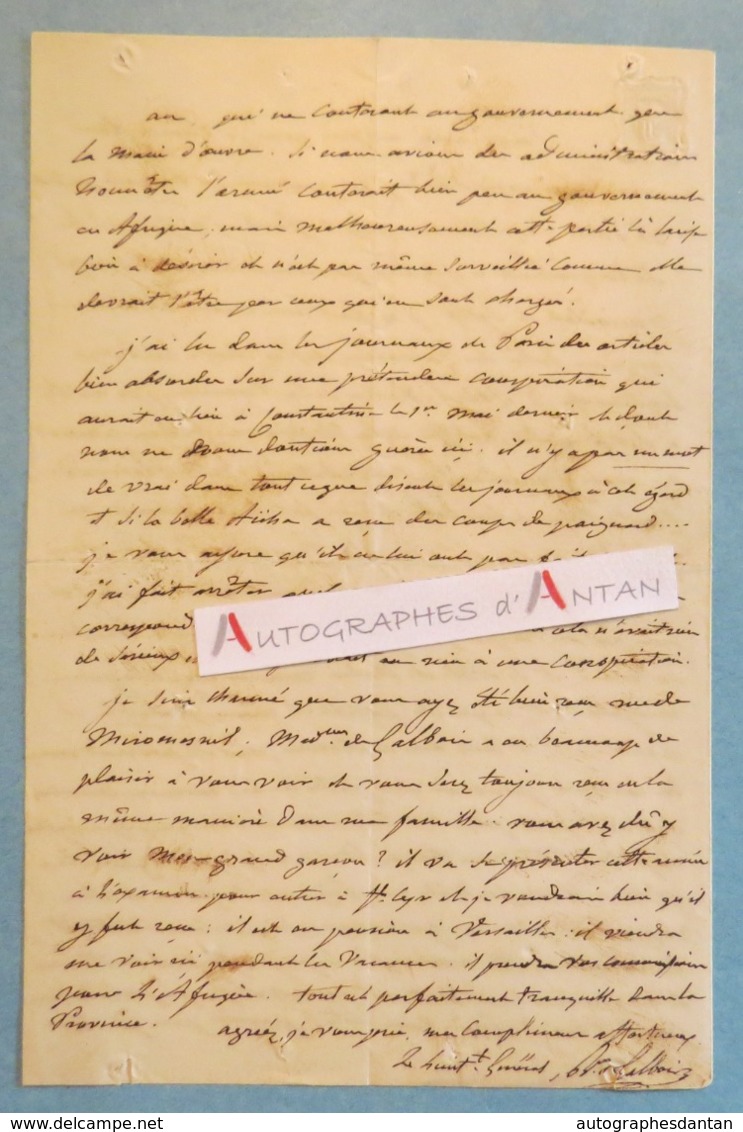 an qui ne couterait au gouvernement que
la main d'œuvre. Si nous avions des administrateurs
honnêtes l'armée couterait bien peu au gouvernement
en Afrique, mais malheureusement cette partie là laisse
bien à désirer et n'est pas même surveillée comme elle
devrait l'être par ceux qui en sont chargés.
j'ai lu dans les journaux de Paris des articles
bien absurdes sur une prétendue conspiration qui
aurait eu lieu à Constantine le 1er mai dernier et dont
nous ne nous doutions guère ici. il n'y a pas un mot
de vrai dans tout ce que disent les journaux à cet égard
et si la belle Aïcha a reçu des coups de poignard....
je vous assure qu'ils ne lui ont pas fait
j'ai fait arrêter
correspond
AUTOGRAPHES d'ANTAN
cela n'avait rien
de sérieux en rien à une conspiration.
je suis charmé que vous ayez été bien reçu rue de
Miromesnil; Mad. de Galbois a eu beaucoup de
plaisir à vous voir et vous serez toujours reçu de la
même manière dans ma famille. vous avez dû y
voir mon grand garçon? il va se présenter cette année
à l'examen pour entrer à St. Cyr et je voudrais bien qu'il
y fut reçu: il est en pension à Versailles. il viendra
me voir ici pendant les vacances. il prendra vos commissions
pour l'Afrique. tout est parfaitement tranquille dans la
Province.
agréez, je vous prie, mes compliments affectueux
Le Lieut.t Général, Bn de Galbois
autographesdantan
autographesdantan